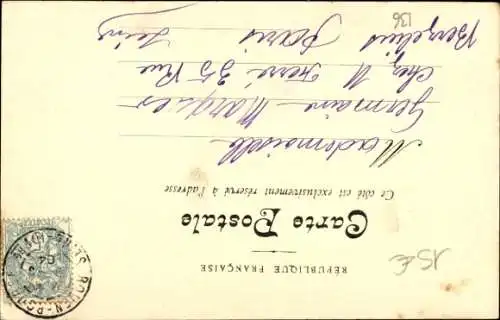 RÉPUBLIQUE FRANÇAISE
Carte Postale
Ce côté est exclusivement réservé à l'adresse
Mademoiselle
Germaine Marques
Chez M 35 Rue
Berzelius Paris
136
15€
ROUEN
04